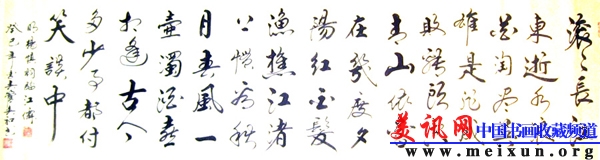 滚々长江
东逝水浪
花淘尽英
雄是非成
败转头空
青山依旧
在几度夕
阳红白髮
渔樵江者
上惯看秋
月春风一
壶浊酒喜
相逢古今
多少事都付
笑谈中
明杨慎词临江仙
癸巳年
美讯网 中国书画收藏频道
www.meixun.org